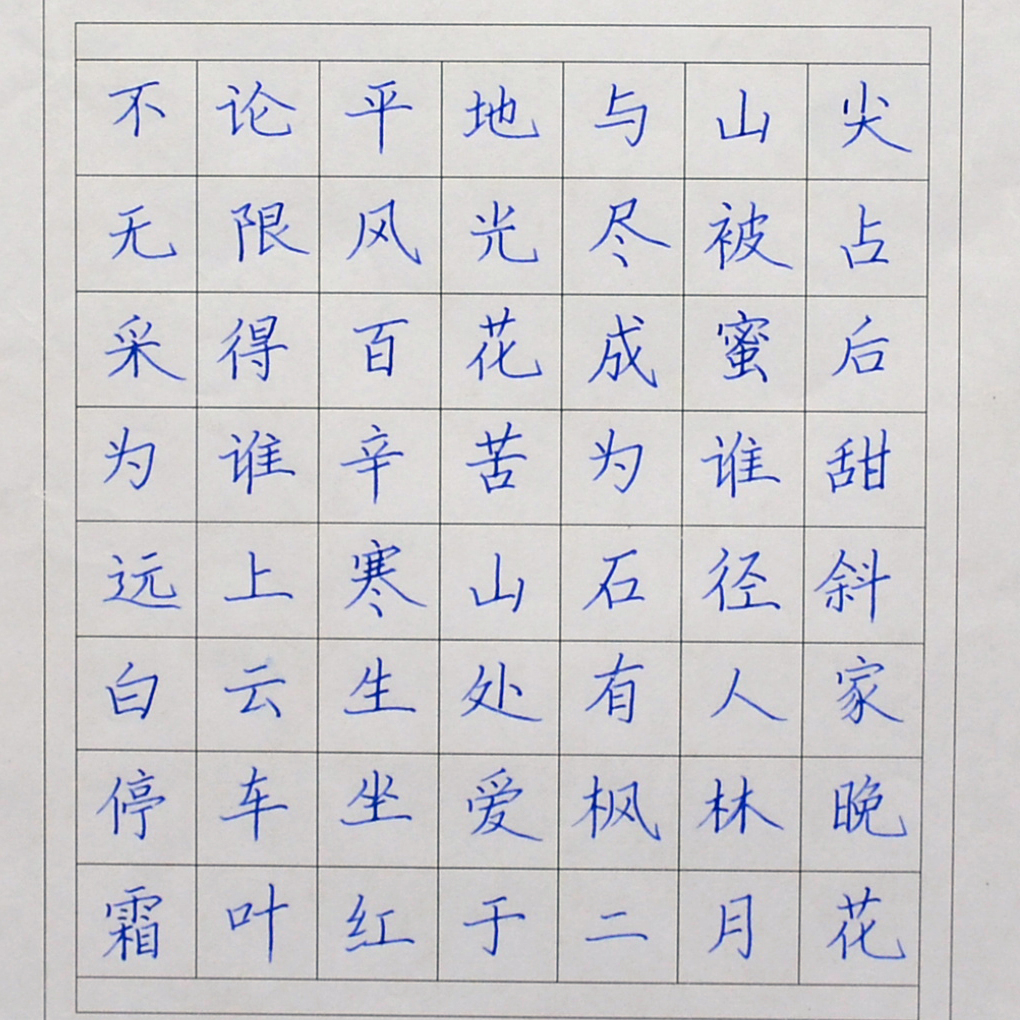 不论平地与山尖
无限风光尽被占
采得百花成蜜后
为谁辛苦为谁甜
远上寒山石径斜
白云生处有人家
停车坐爱枫林晚
霜叶红于二月花